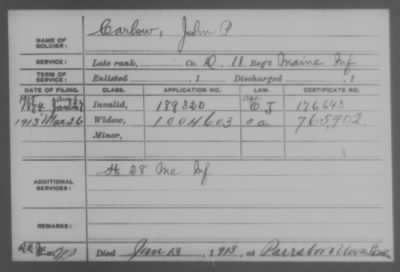 NAME OF SOLDIER: Carlow, John P
SERVICE: Late rank, Co. D. 11 Reg't Maine Inf
TERM OF SERVICE: Enlisted , 1 Discharged , 1
DATE OF FILING. CLASS. APPLICATION NO. LAW. CERTIFICATE NO.
1874 Invalid, 189320 176643
1913 Mar 26 Widow, 1004603 765902
Minor,
ADDITIONAL SERVICES: H 28 Me Inf
REMARKS:
Died Jan 13, 1913, at Parrsboro Nova Scotia